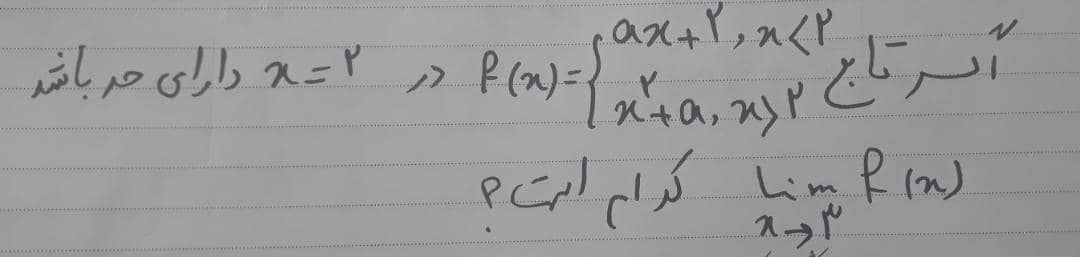 اگر تابع f(x)={ax+۲, x<۲
x۲+a, x>۲ در x=۲ دارای حد باشد
lim f(x) کدام است؟
x→۳